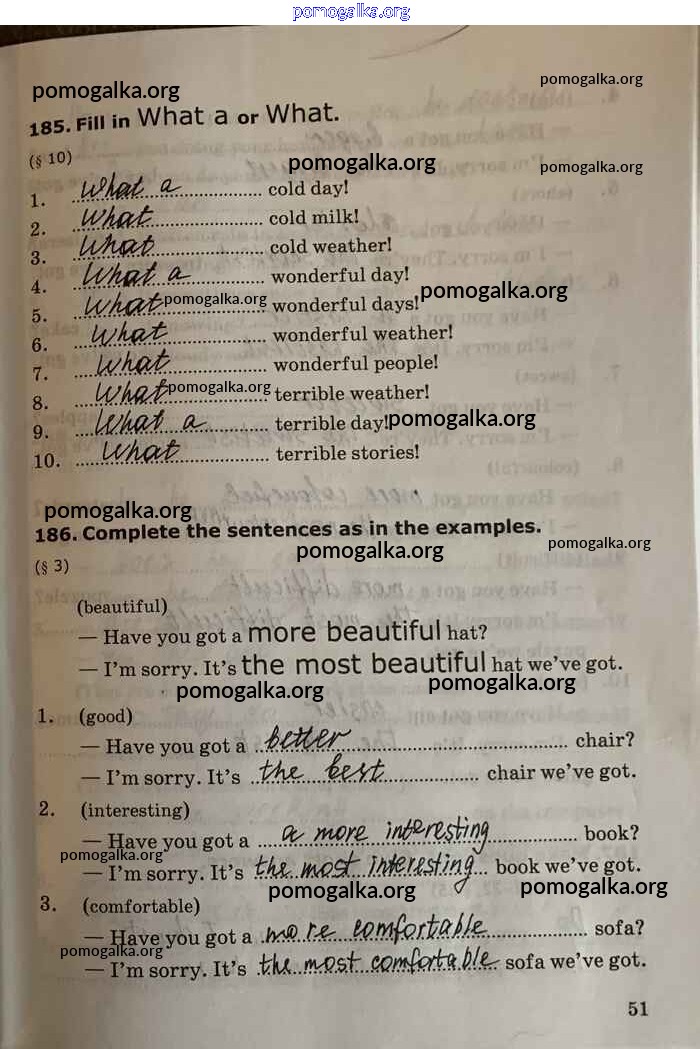 pomogalka.org
pomogalka.org
pomogalka.org
185. Fill in What a or What.
(§ 10)
pomogalka.org
pomogalka.org
1. What a cold day!
2. What cold milk!
3. What cold weather!
4. What a wonderful day!
5. What pomogalka.org wonderful days! pomogalka.org
6. What wonderful weather!
7. What wonderful people!
8. What pomogalka.org terrible weather!
9. What a terrible day! pomogalka.org
10. What terrible stories!
pomogalka.org
186. Complete the sentences as in the examples.
pomogalka.org
pomogalka.org
(§ 3)
(beautiful)
— Have you got a more beautiful hat?
— I'm sorry. It's the most beautiful hat we've got.
pomogalka.org
pomogalka.org
1. (good)
— Have you got a better chair?
— I'm sorry. It's the best chair we've got.
2. (interesting)
— Have you got a a more interesting book?
pomogalka.org
— I'm sorry. It's the most interesting book we've got.
pomogalka.org
pomogalka.org
3. (comfortable)
— Have you got a more comfortable sofa?
pomogalka.org
— I'm sorry. It's the most comfortable sofa we've got.
51